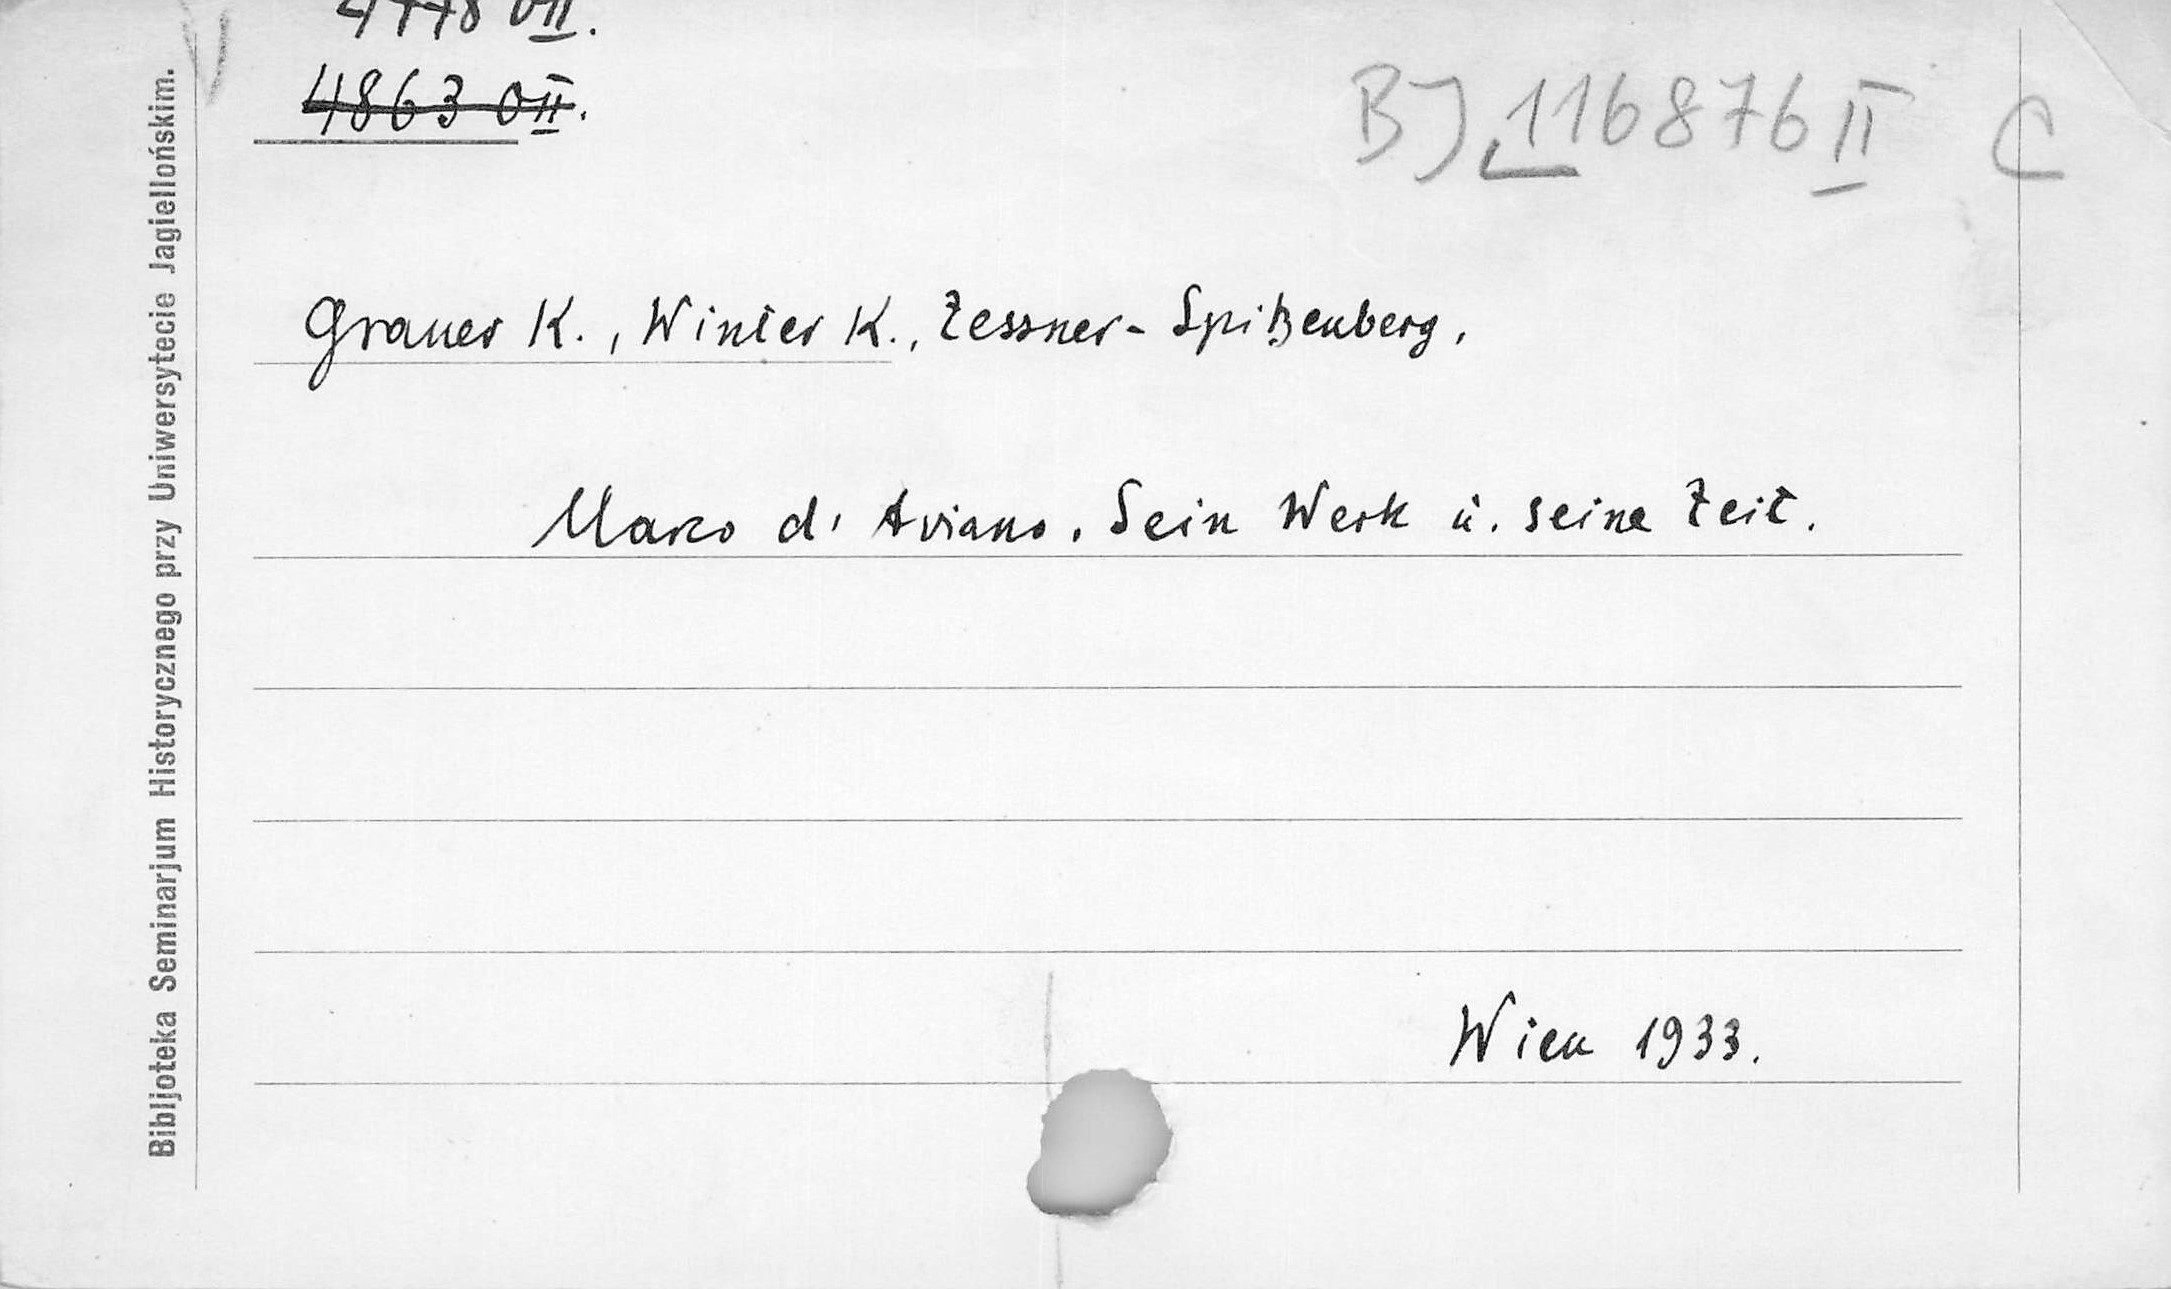 O II.
4863 O II.
BJ 116876 II C
Grauer K., Winter K., Zessner-Spitzenberg,
Marco d' Aviano. Sein Werk u. seine Zeit.
Wien 1933.
Bibljoteka Seminarjum Historycznego przy Uniwersytecie Jagiellońskim.